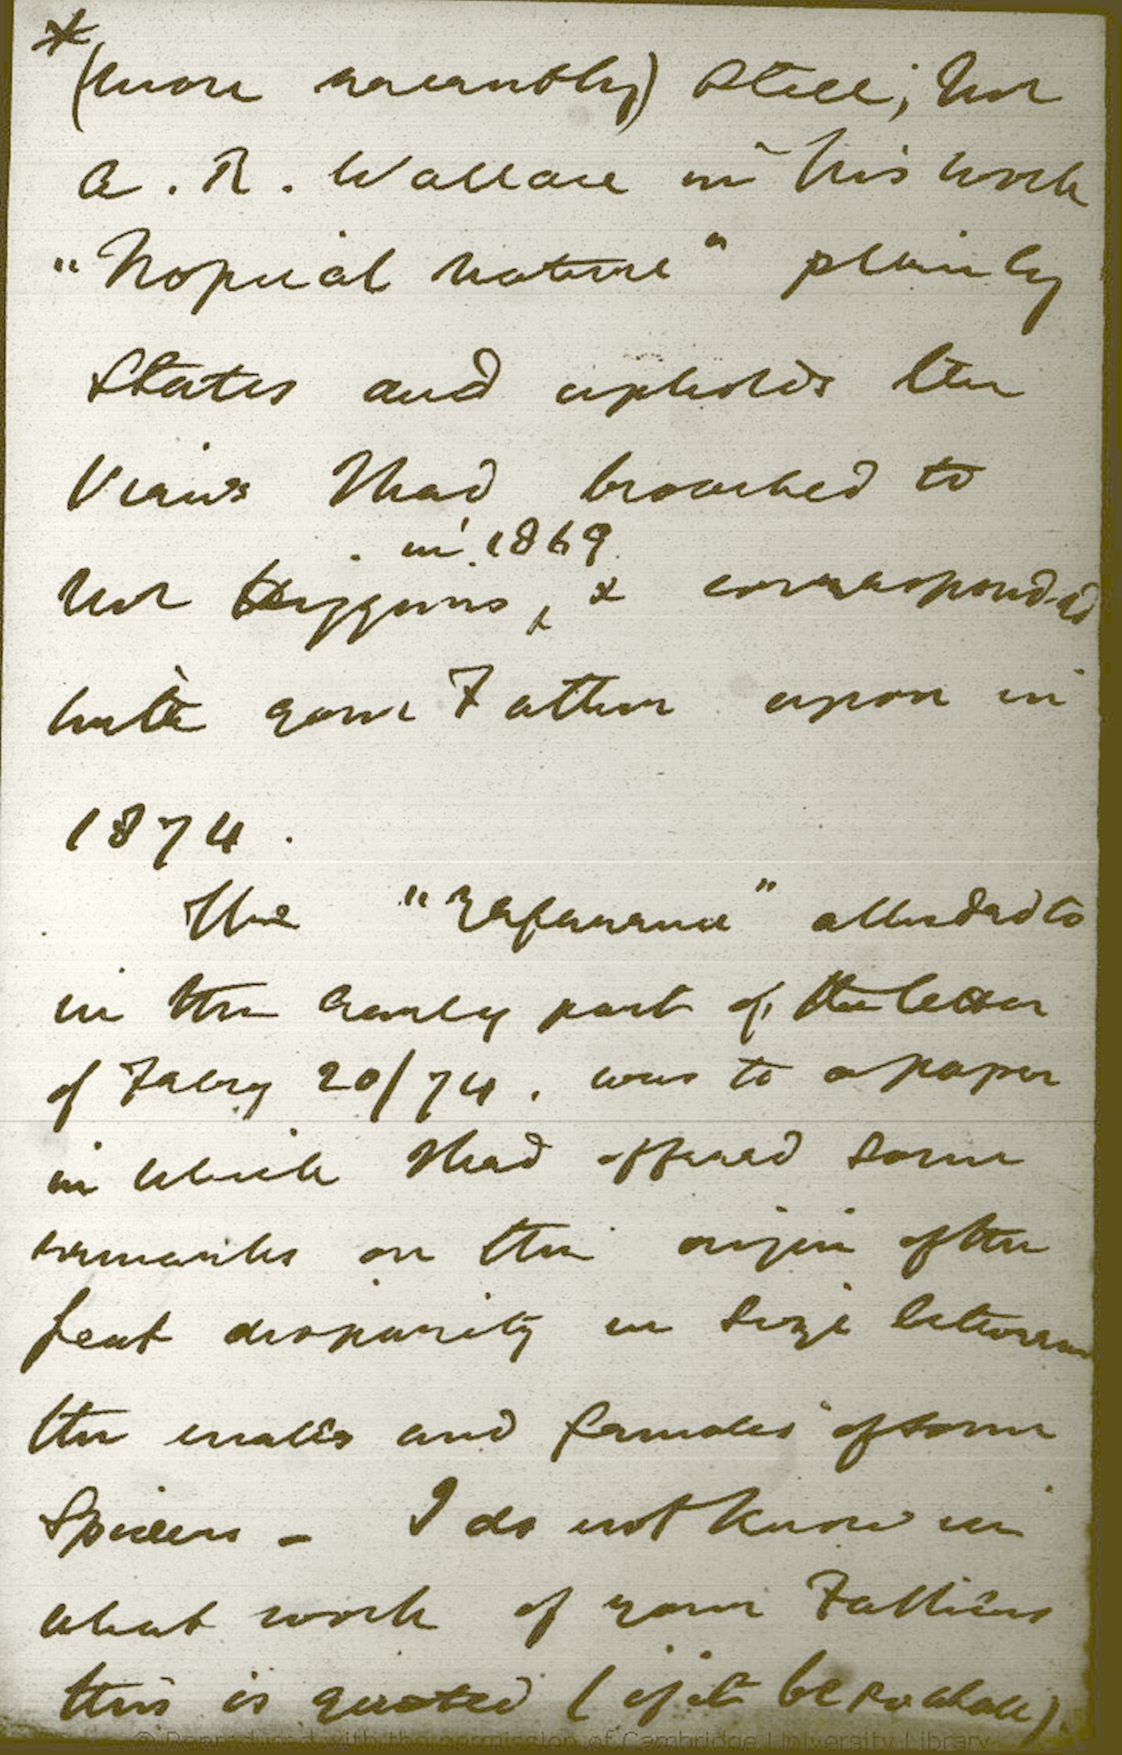 *
(more recently) Still, Mr
A. R. Wallace in his work
"Tropical Nature" plainly
States and upholds the
Views I had broached to
in 1869
Mr Higgins, & corresponded
with your Father upon in
1874.
The "reference" alluded to
in the early part of the letter
of Febry 20/74. was to a paper
in which I had offered some
remarks on the origin of the
great disparity in size between
the males and females of some
Spiders – I do not know in
what work of your Fathers
this is quoted (if it be so at all).
© Reproduced with the permission of Cambridge University Library